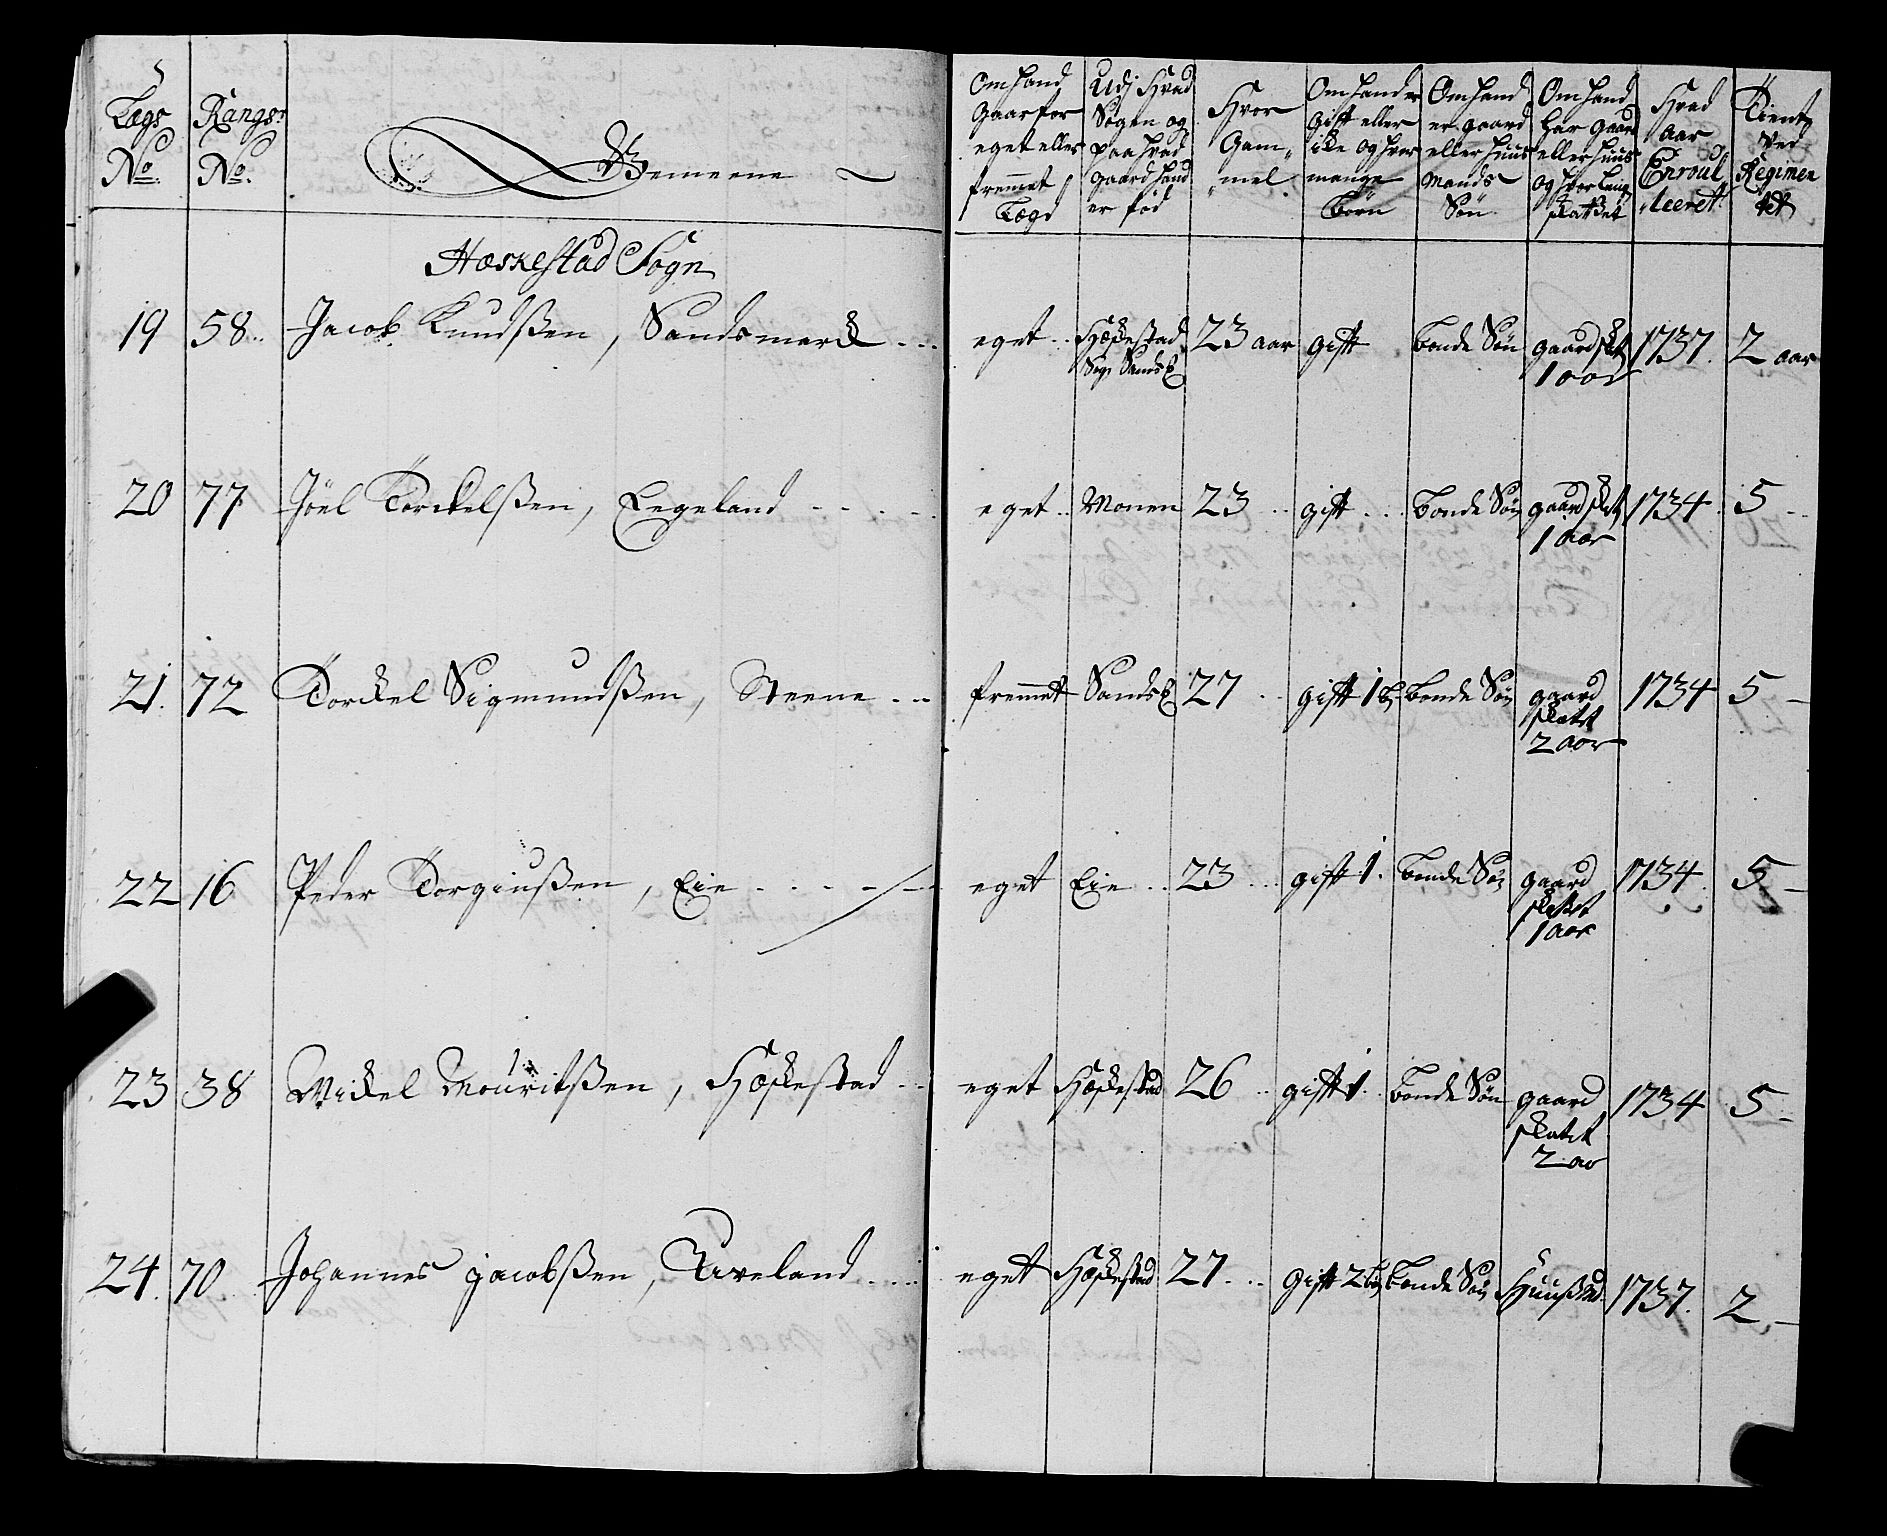 Lægs No. Rangs No. Gemeene
Om hand gaar for eget eller fremmet Lægd
Udj hvad Sogn og paa hvad gaard hand er fød
Hvor Gammel
Om hand er gift eller icke og hvor mange Børn
Om hand er gaard eller huus Mands Søn
Om hand har gaard eller huus og hvor lang skattet
Hvad aar Enroulleeret
Tient ved Regimentet
Hæskestad Sogn
19 58 Jacob Knudsßen, Sandsmark eget Hæskestad Sogn 23 aar gift bonde Søn gaard 1 aar 1737 2 aar
20 77 Jöel Torckelsßen, Eegeland eget Monen 23 gift bonde Søn gaard 1 aar 1734 5
21 72 Torckel Sigmundsßen, Steene fremmet 27 gift 1 bonde Søn gaard skatet 2 aar 1734 5
22 16 Peder Torgiusßen, Eie eget Eie 23 gift 1 bonde Søn gaard skatet 1 aar 1734 5
23 38 Mickel Mouritsßen, Hæskestad eget Hæskestad 26 gift 1 bonde Søn gaard skatet 2 aar 1734 5
24 70 Johannes Jacobsßen, Aareland eget Hæskestad 27 gift 2 bonde Søn 1737 2